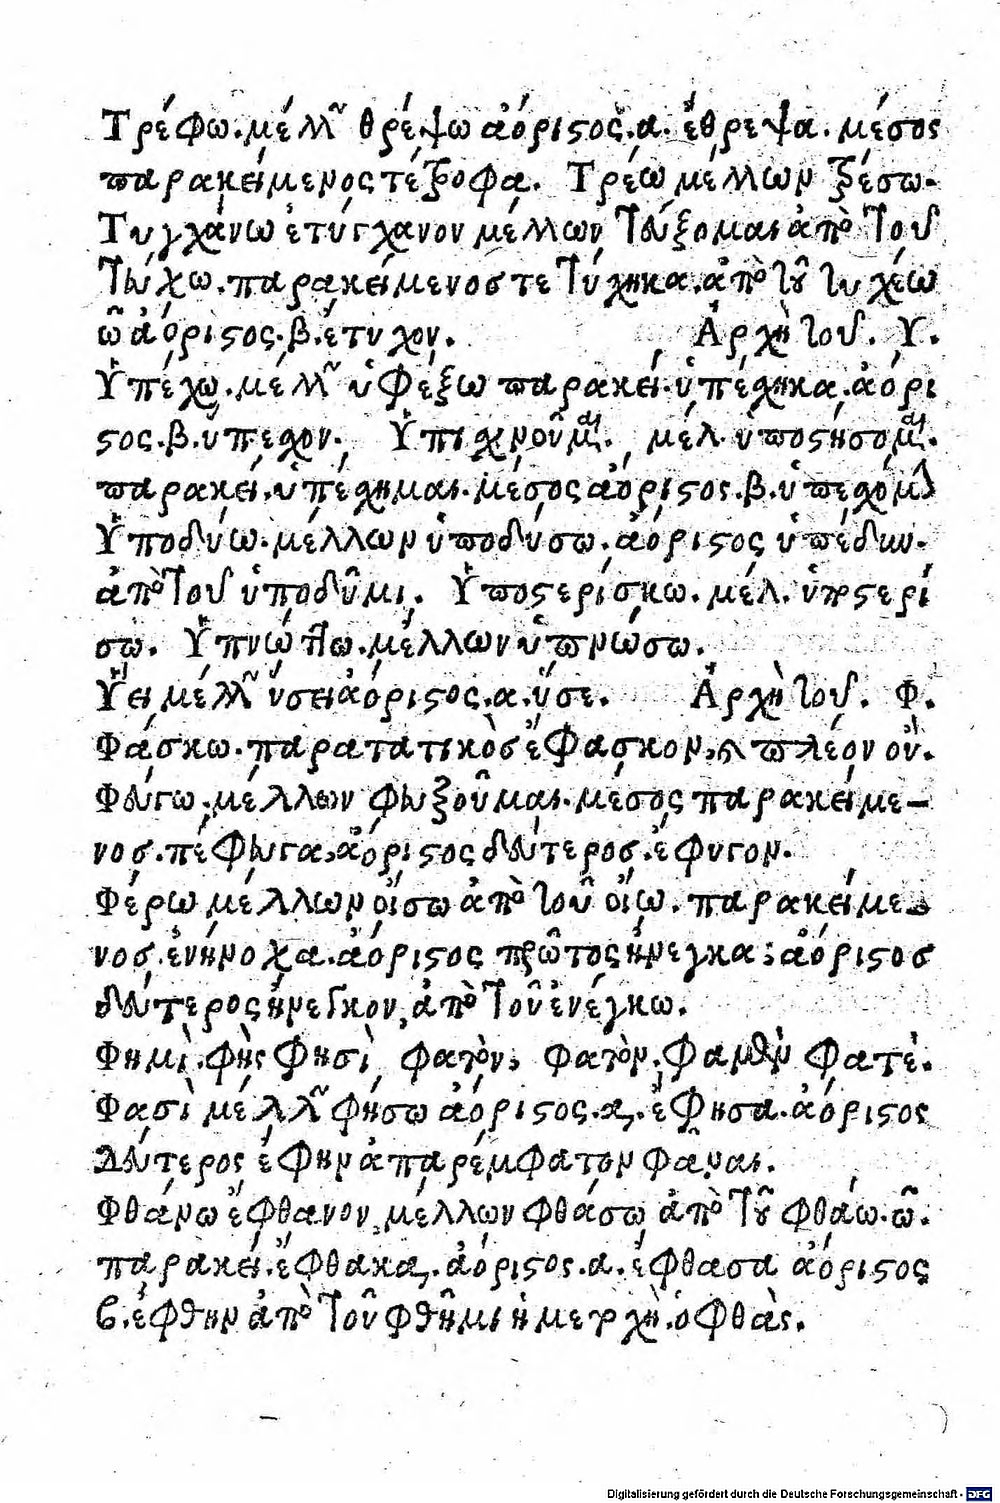 Τρέφω. μέλλ͂ θρέψω ἀόριϛος. α. ἔθρεψα. μέσος
παρακείμενος τέτροφα. Τρέω μέλλων τρέσω.
Τυγχάνω ἐτύγχανον μέλλων τεύξομαι ἀπὸ τοῦ
τεύχω. παρακείμενοσ τετύχηκα. ἀπὸ τοῦ τυχέω
ῶ ἀόριϛος. β. ἔτυχον. Ἀρχὴ τοῦ. Υ.
Ὑπέχω. μέλλ͂ ὑφέξω παρακεί. ὑπέχηκα. ἀόρι
ϛος. β. ὕπεχον. Ὑπιχνοῦμαι. μέλ. ὑποϛήσομαι.
παρακεί. ὑπέχημαι. μέσος ἀόριϛος. β. ὑπεχόμ
Ὑποδύω. μέλλων ὑποδύσω. ἀόριϛος ὑπέδυν.
ἀπὸ τοῦ ὑποδῦμι. Ὑποϛερίσκω. μέλ. ὑποϛερί
σω. Ὑπνώττω. μέλλων ὑπνώσω.
Ὕει μέλλ͂ ὕσει ἀόριϛος. α. ὗσε. Ἀρχὴ τοῦ. Φ.
Φάσκω. παρατατικὸσ ἔφασκον, ϗ πλέον οὔ.
Φεύγω. μέλλων φευξοῦμαι. μέσος παρακείμε-
νοσ. πέφευγα, ἀόριϛος δεύτεροσ. ἔφυγον.
Φέρω μέλλων οἴσω ἀπὸ τοῦ οἴω. παρακείμε-
νοσ. ἐνήνοχα. ἀόριϛος πρῶτος ἤνεγκα: ἀόριϛοσ
δεύτερος ἤνεγκον, ἀπὸ τοῦ ἐνέγκω.
Φημὶ. φὴς φησὶ φατὸν, φατὸν. φαμὲν φατέ.
Φασὶ μέλλ͂ φήσω ἀόριϛος. α. ἔφησα. ἀόριϛος
Δεύτερος ἔφην ἀπαρέμφατον φάναι.
Φθάνω ἔφθανον, μέλλων φθάσω ἀπὸ τοῦ φθάω. ῶ.
παρακεί. ἔφθακα. ἀόριϛος. α. ἔφθασα ἀόριϛος
β. ἔφθην ἀπὸ τοῦ φθῆμι ἡ μετοχὴ. ὁ φθὰς.
Digitalisierung gefördert durch die Deutsche Forschungsgemeinschaft - DFG